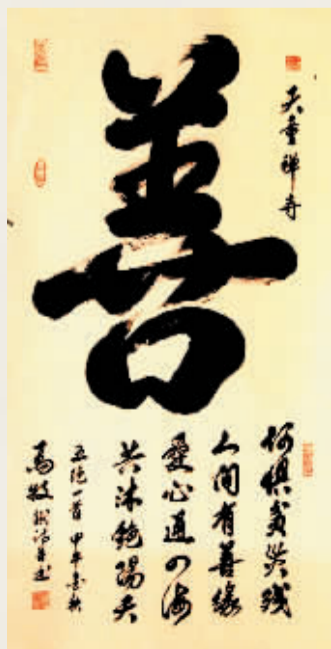 天童禅寺
善
何惧災残
人间有善缘
爱心通四海
共沐艳阳天
五绝一首 甲午
马牧